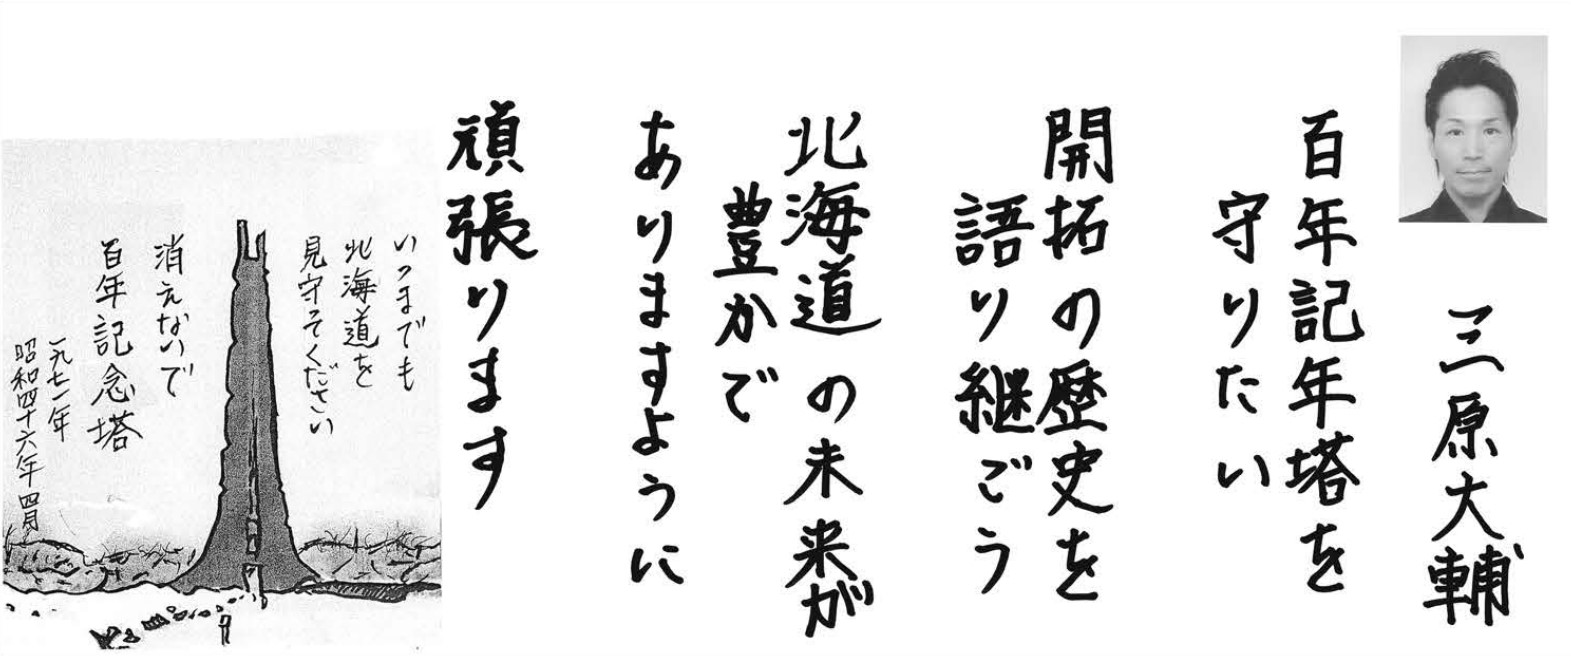 三原大輔
百年記年塔を
守りたい
開拓の歴史を
語り継ごう
北海道の未来が
豊かで
ありますように
頑張ります
いつまでも
北海道を
見守てください
消えないで
百年記念塔
一九七一年
昭和四十六年四月